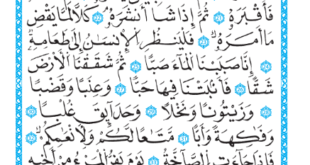 فَأَقْبَرَهُۥ ۝٢١ ثُمَّ إِذَا شَآءَ أَنشَرَهُۥ ۝٢٢ كَلَّا لَمَّا يَقْضِ
مَآ أَمَرَهُۥ ۝٢٣ فَلْيَنظُرِ ٱلْإِنسَٰنُ إِلَىٰ طَعَامِهِۦٓ ۝٢٤
أَنَّا صَبَبْنَا ٱلْمَآءَ صَبًّا ۝٢٥ ثُمَّ شَقَقْنَا ٱلْأَرْضَ
شَقًّا ۝٢٦ فَأَنۢبَتْنَا فِيهَا حَبًّا ۝٢٧ وَعِنَبًا وَقَضْبًا
۝٢٨ وَزَيْتُونًا وَنَخْلًا ۝٢٩ وَحَدَآئِقَ غُلْبًا
۝٣٠ وَفَٰكِهَةً وَأَبًّا ۝٣١ مَّتَٰعًا لَّكُمْ وَلِأَنْعَٰمِكُمْ ۝٣٢
فَإِذَا جَآءَتِ ٱلصَّآخَّةُ ۝٣٣ يَوْمَ يَفِرُّ ٱلْمَرْءُ مِنْ أَخِيهِ